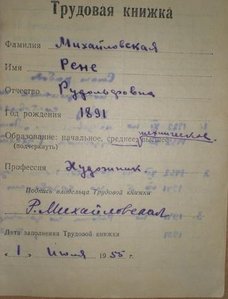 Трудовая книжка
Фамилия Михайловская
Имя Рене
Отчество Рудольфовна
Год рождения 1891
Образование: начальное, среднее, высшее
(подчеркнуть)
Профессия Художник
Подпись владельца Трудовой книжки
Р. Михайловская
Дата заполнения Трудовой книжки
"1" Июля 1955 года